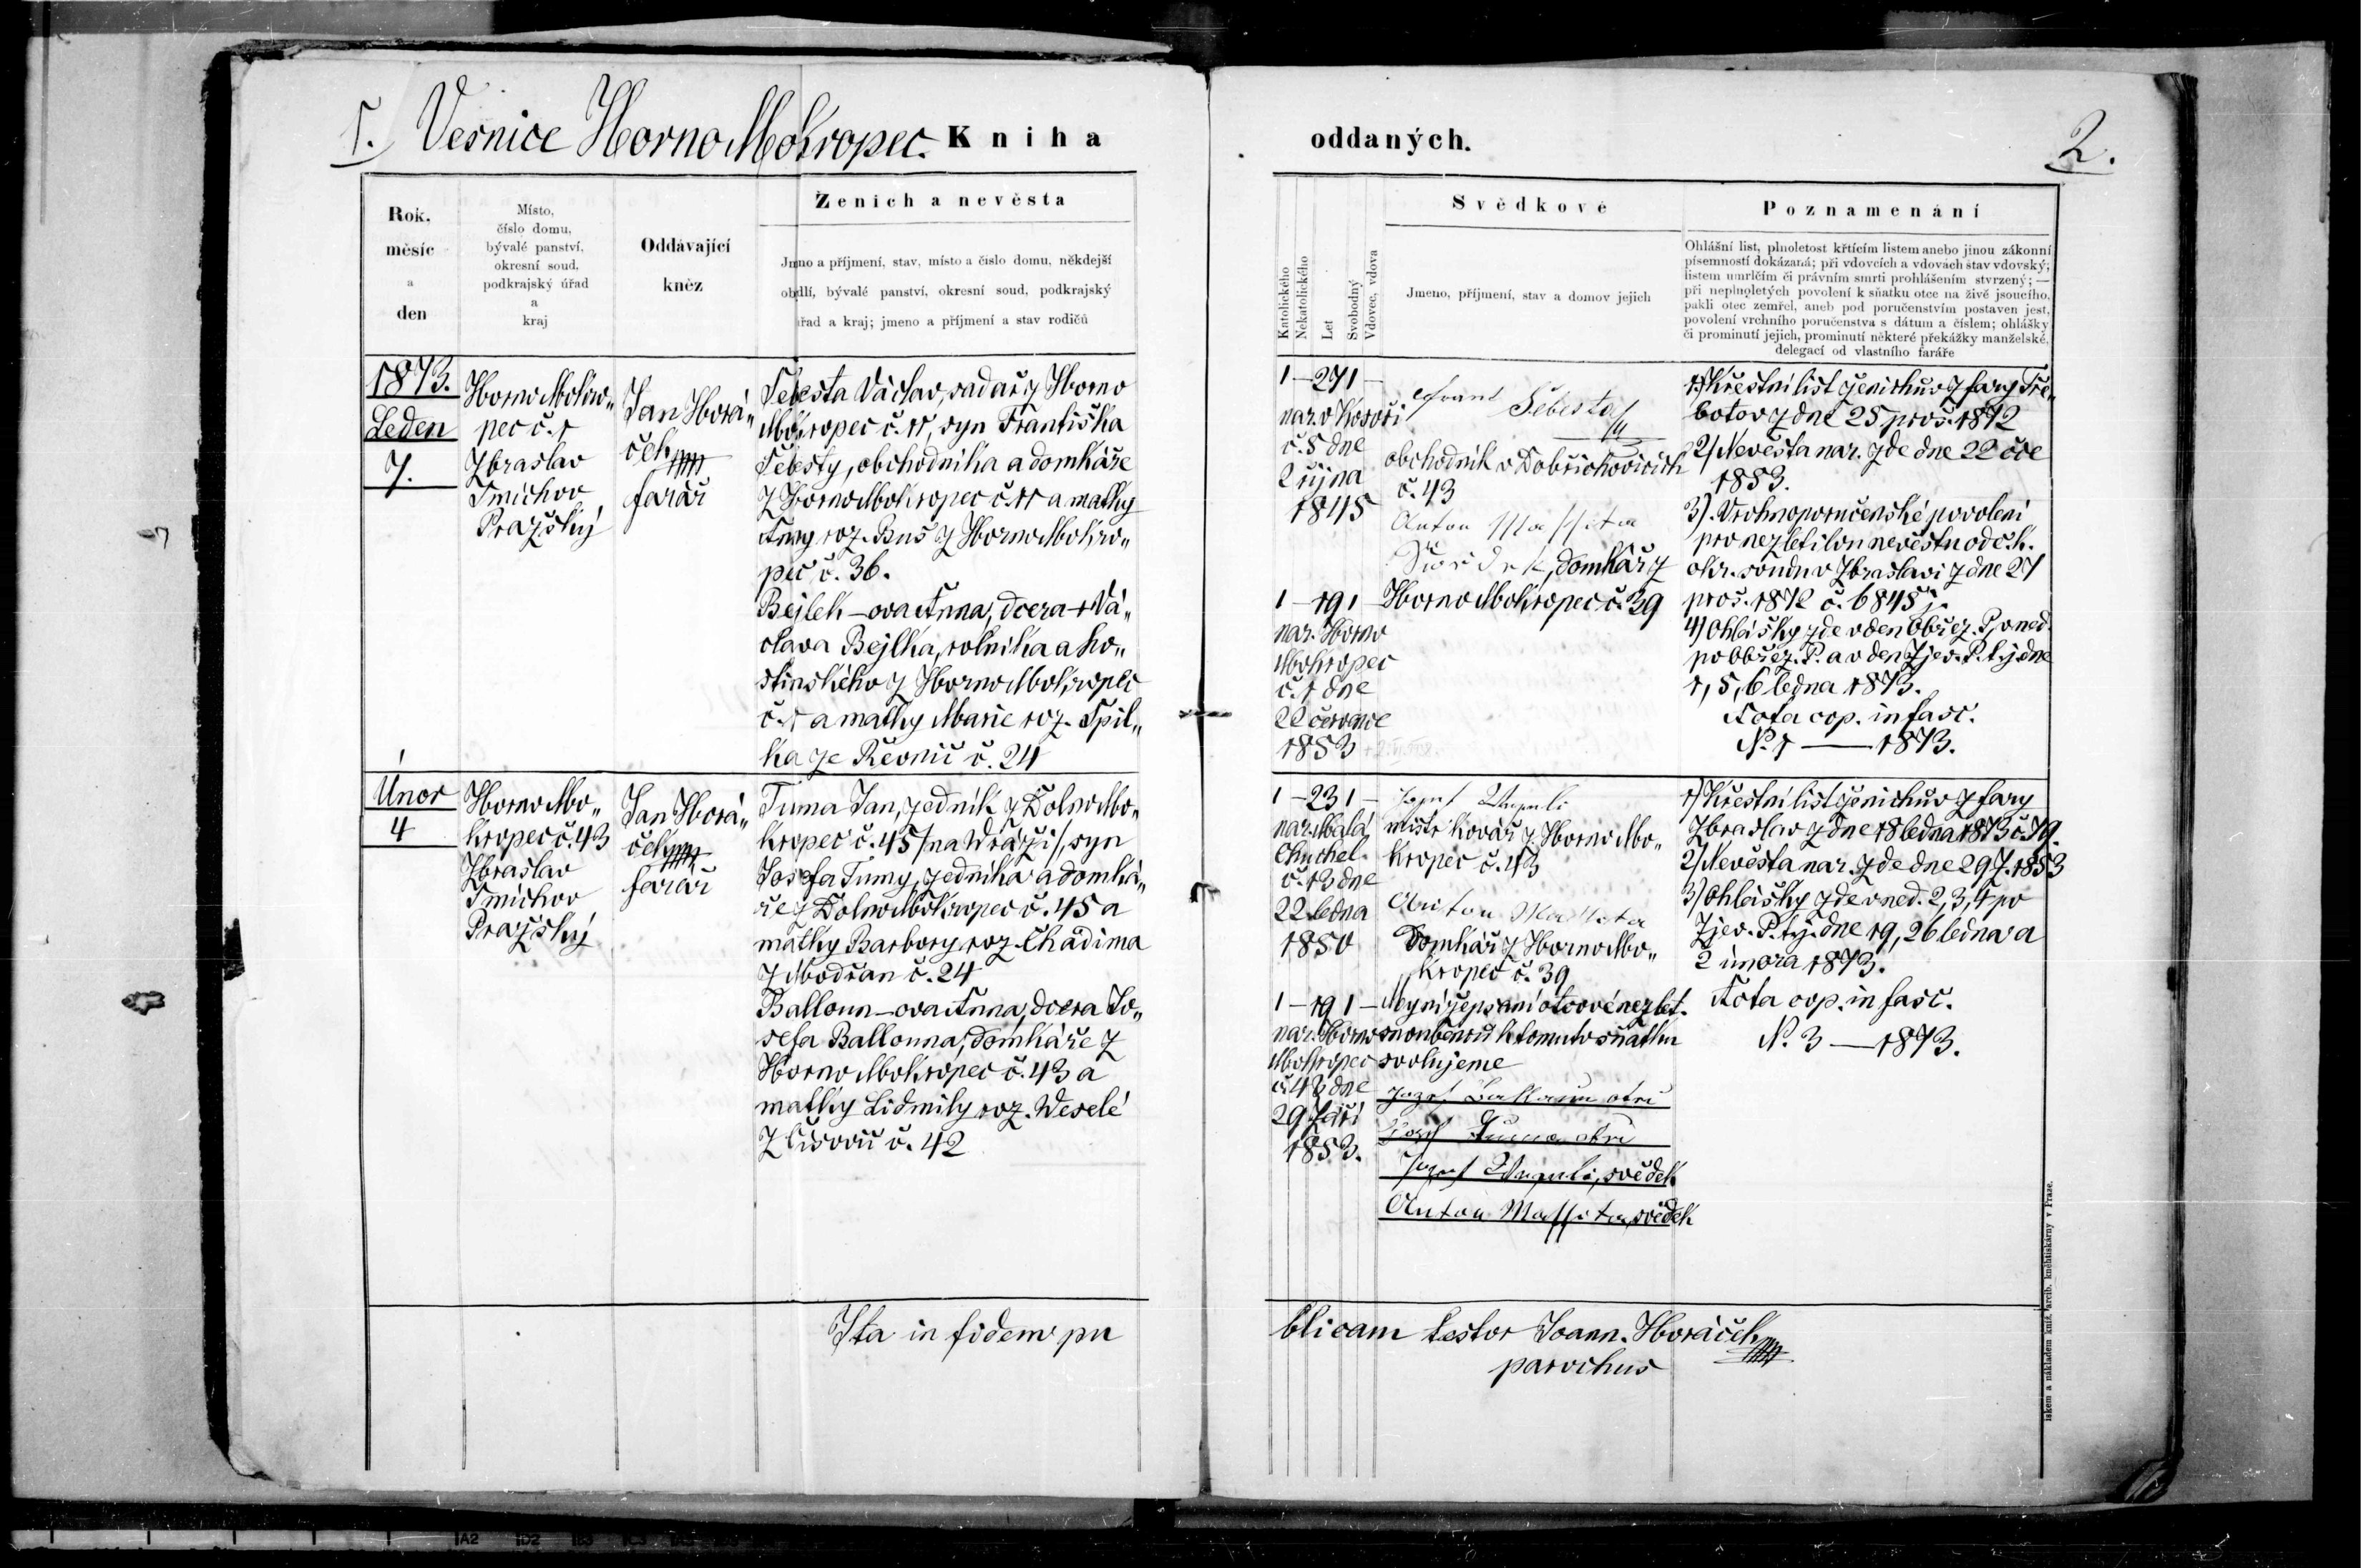 1. Vesnice HornoMokropec. Kniha
Rok, měsíc a den
Místo, číslo domu, bývalé panství, okresní soud, podkrajský úřad a kraj
Oddávající kněz
Ženich a nevěsta
Jmno a příjmení, stav, místo a číslo domu, někdejší
obydlí, bývalé panství, okresní soud, podkrajský
úřad a kraj; jmeno a příjmení a stav rodičů
1873.
Leden
7.
HornoMokro„
pec č. 1
Zbraslav
Smíchov
Pražský
Jan Horá„
ček
farář
Šebesta Václav, sadař z Horno
Mokropec č. 11, syn Františka
Šebesty, obchodníka a domkáře
z HornoMokropec č. 11 a matky
Anny roz. Bus z HornoMokro„
pec č. 36.
Bejlek-ova Anna, dcera + Vá„
clava Bejlka, rolníka a ho„
stinského z HornoMokropec
č. 1 a matky Marie roz. Spil„
ka ze Řevnic č. 24
Únor
4
HornoMo„
kropec č. 43
Zbraslav
Smíchov
Pražský
Jan Horá„
ček
farář
Tuma Jan, zedník z DolnoMo„
kropec č. 45 /na Vráži/, syn
Josefa Tumy, zedníka a domká„
ře z DolnoMokropec č. 45 a
matky Barbory roz. Chadima
z Modřan č. 24
Balloun-ova Anna, dcera Jo„
sefa Ballouna, domkáře z
HornoMokropec č. 43 a
matky Lidmily roz. Weselé
z Čísovic č. 42
Ita in fidem pu
oddaných.
2.
Katolického
Nekatolického
Let
Svobodný
Vdovec, vdova
Svědkové
Jmeno, příjmení, stav a domov jejich
Poznamenání
Ohlášní list, plnoletost křtícím listem anebo jinou zákonní
písemností dokázaná; při vdovcích a vdovách stav vdovský;
listem umrlčím či právním smrti prohlášením stvrzený; —
při neplnoletých povolení k sňatku otce na živě jsoucího,
pakli otec zemřel, aneb pod poručenstvím postaven jest,
povolení vrchního poručenstva s dátum a číslem; ohlášky
či prominutí jejich, prominutí některé překážky manželské,
delegací od vlastního faráře
1 — 27 1 —
nar. v Kosoři
č. 5 dne
2 října
1845
Frant Šebesta
obchodník v Dobřichovicích
č. 43
Anton Massita
domkář z
HornoMokropec č. 39
1 — 19 1 —
nar. Horno
Mokropec
č. 1 dne
22 července
1853
1) Křestní list ženichův z fary Tře„
botov z dne 25 pros. 1872
2) Nevěsta nar. zde dne 22 čce
1853.
3). Vrchnoporučenské povolení
pro nezletilou nevěstu od c. k.
okr. soudu v Zbraslavi z dne 27
pros. 1872 č. 6845 j.
4) Ohlášky zde v den Obřez. P., v ned.
po Obřez. P. a v den Zjev. P. t. j. dne
1, 5, 6 ledna 1873.
Nota cop. in fasc.
N. 1 — 1873.
1 — 23 1 —
nar. Malá
Chuchel.
č. 13 dne
22 ledna
1850
Josef
mistr kovář z HornoMo„
kropec č. 43
Anton Massita
Domkář z HornoMo„
kropec č. 39
1 — 19 1 —
nar. Horno
Mokropec
č. 43 dne
29 září
1853.
My nížepsaní otcové nezlet.
snoubenců k tomuto sňatku
svolujeme
Jozef Balloun otec
Josef Tuma otec
Josef svědek
Anton Massita, svědek
1) Křestní list ženichův z fary
Zbraslav z dne 18 ledna 1873 č. 79.
2) Nevěsta nar. zde dne 29 7. 1853
3) Ohlášky zde v ned. 2, 3, 4 po
Zjev. P. t. j. dne 19, 26 ledna a
2 února 1873.
Nota cop. in fasc.
N. 3 — 1873.
blicam testor Joann. Horáček
parochus